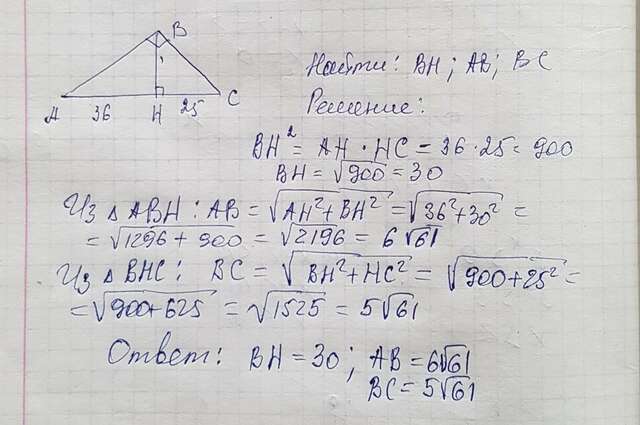 B
A 36 H 25 C
Найти: BH; AB; BC
Решение:
BH² = AH · HC = 36 · 25 = 900
BH = √900 = 30
Из △ ABH : AB = √AH²+BH² = √36²+30² =
= √1296 + 900 = √2196 = 6√61
Из △ BHC : BC = √BH²+HC² = √900+25² =
= √900+625 = √1525 = 5√61
Ответ: BH = 30 ; AB = 6√61
BC = 5√61